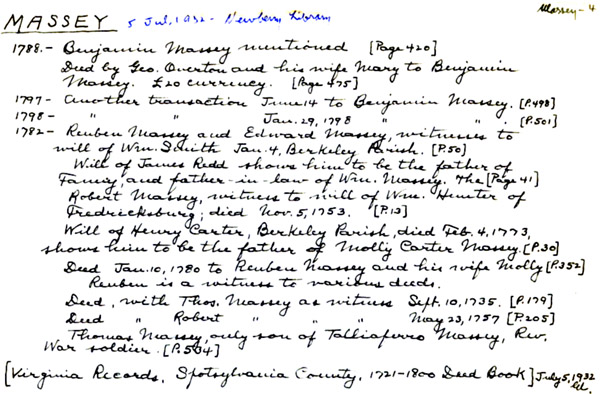 Massey - 4
MASSEY 5 Jul, 1932 - Newberry Library
1788. - Benjamin Massey mentioned [Page 420]
Deed by Geo. Overton and his wife Mary to Benjamin
Massey. £20 currency. [Page 475]
1797 - Another transaction June 14 to Benjamin Massey. [P.498]
1798 - " " Jan. 29, 1798 " " . [P.501]
1782 - Reuben Massey and Edward Massey, witnesses to
will of Wm. Smith Jan. 4, Berkeley Parish. [P.50]
Will of James Redd shows him to be the father of
Fanny, and father-in-law of Wm. Massey. The [Page 41]
Robert Massey, witness to will of Wm. Hunter of
Fredericksburg; died Nov. 5, 1753. [P.13]
Will of Henry Carter, Berkeley Parish, died Feb. 4, 1773,
shows him to be the father of Molly Carter Massey. [P.30]
Deed Jan. 10, 1780 to Reuben Massey and his wife Molly [P.352]
Reuben is a witness to various deeds.
Deed, with Thos. Massey as witness Sept. 10, 1735. [P.179]
Deed " Robert " " " May 23, 1757 [P.205]
Thomas Massey, only son of Talliaferro Massey, Rev.
War soldier. [P.534]
[Virginia Records, Spotsylvania County, 1721-1800 Deed Book] July 5, 1932